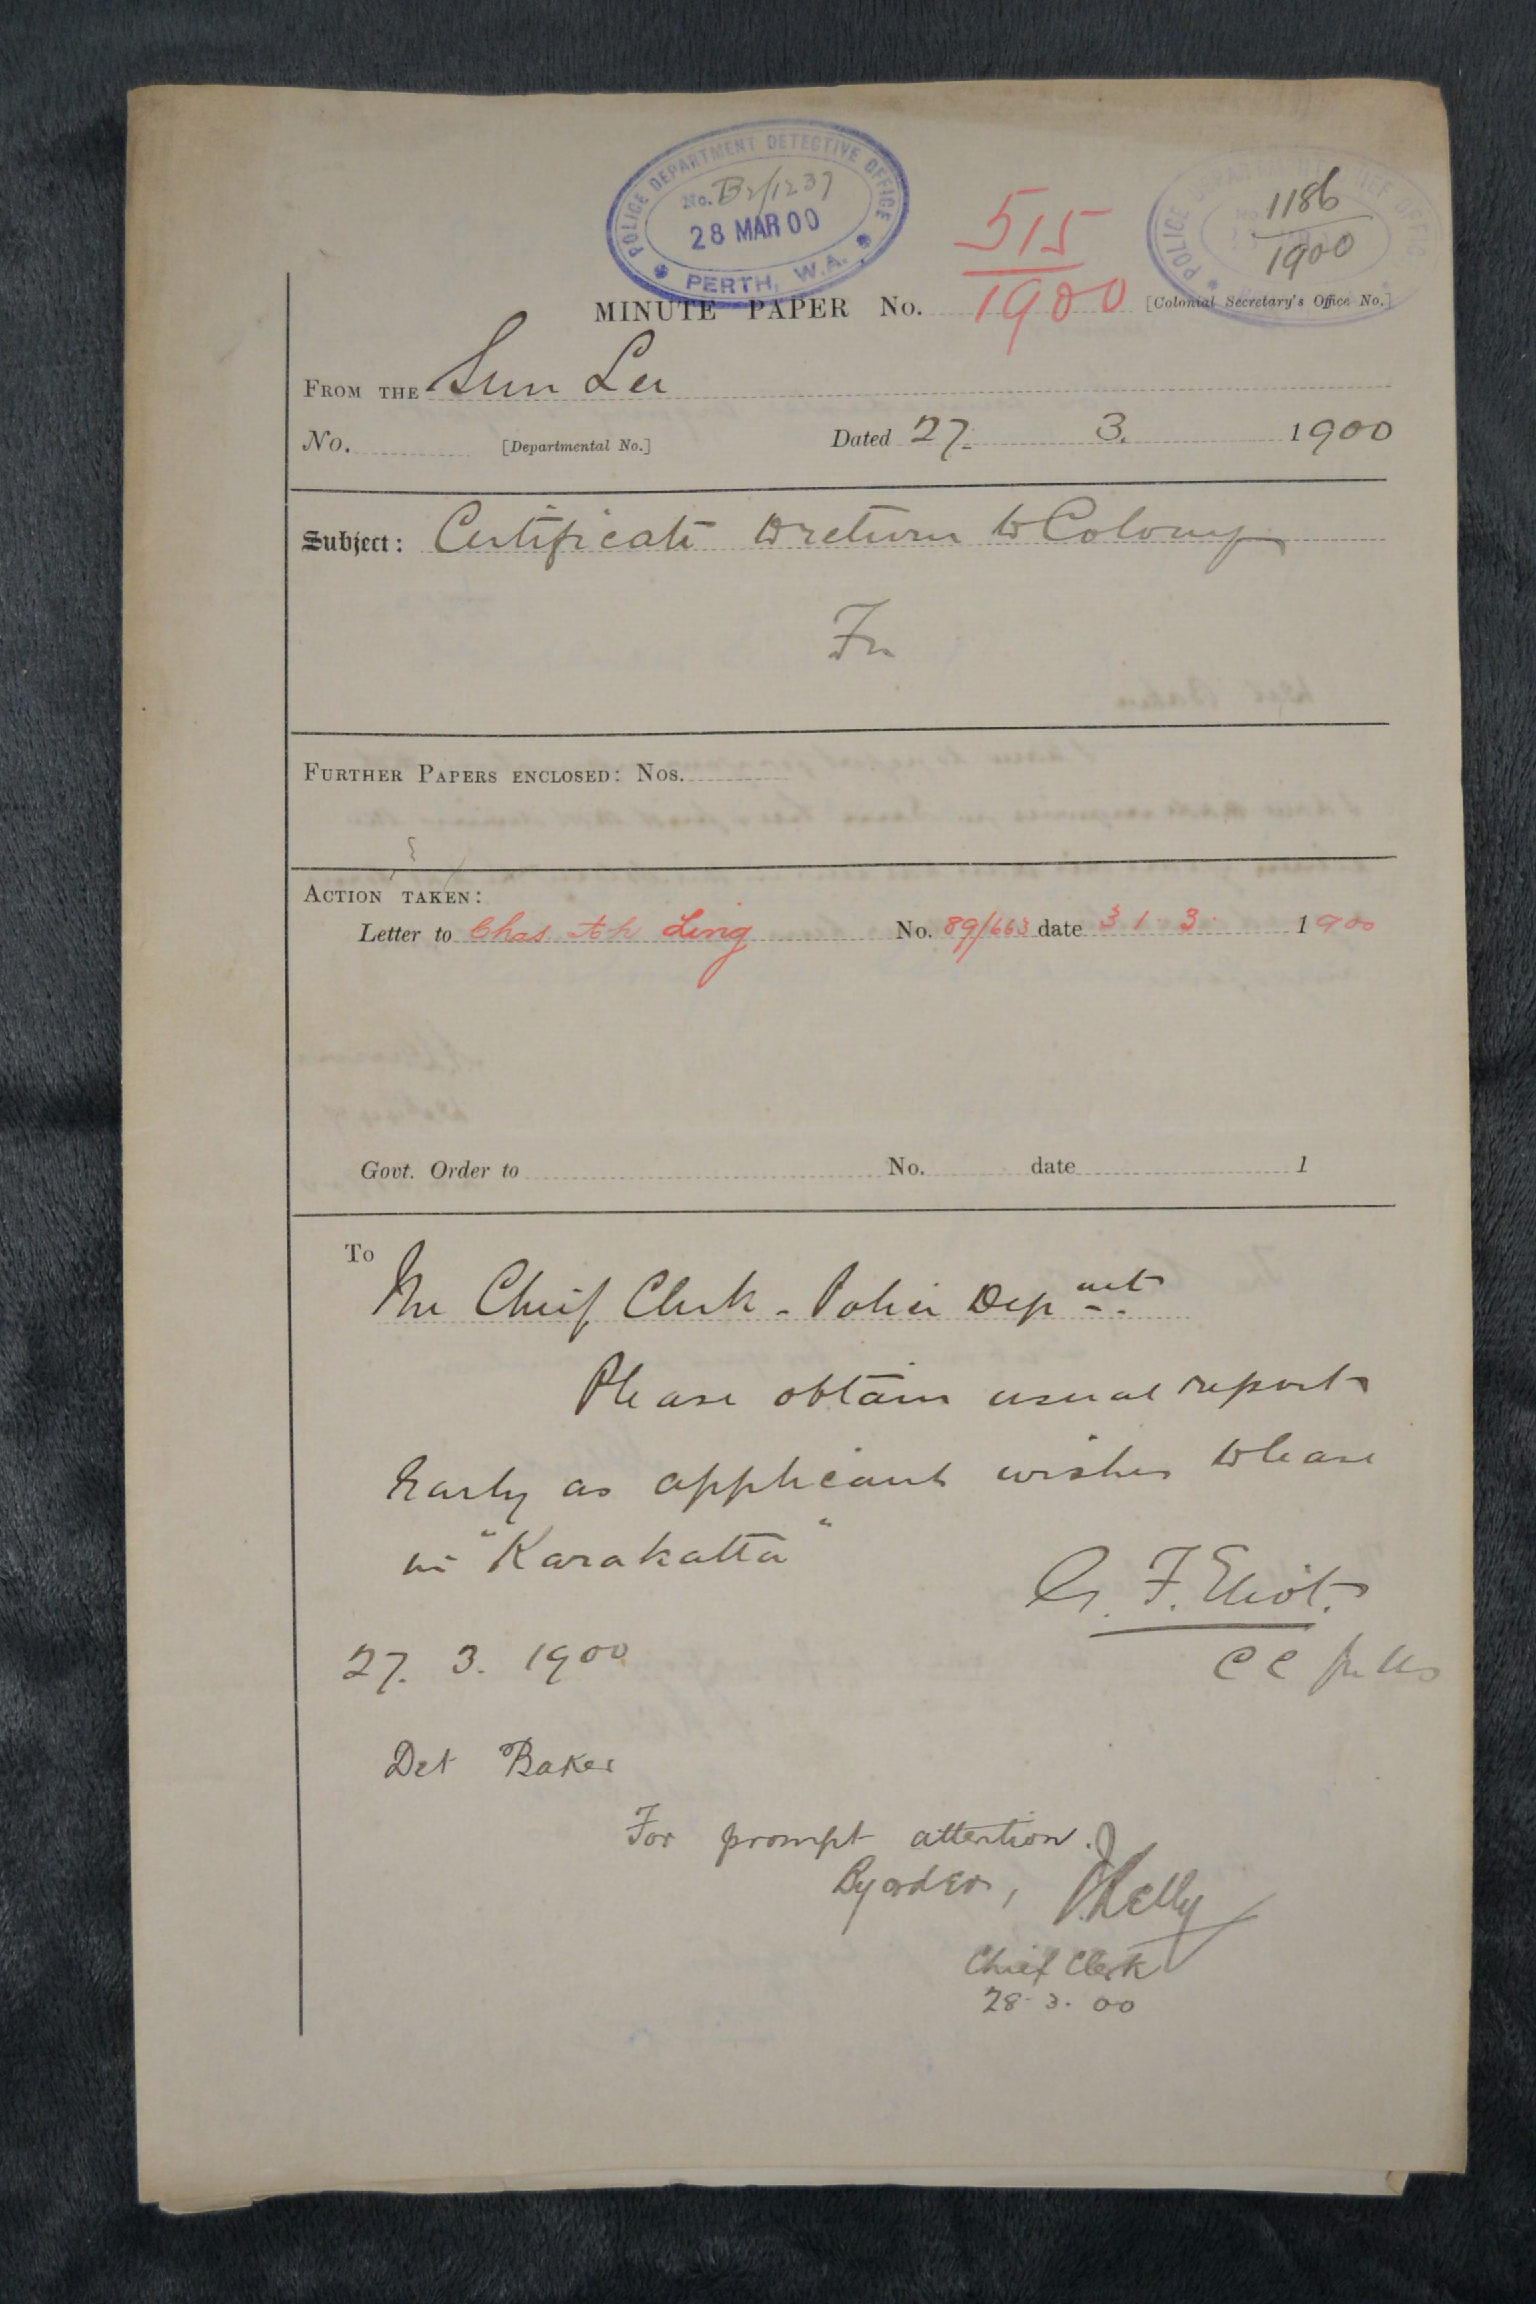 POLICE DEPARTMENT DETECTIVE OFFICE
No. B2/1237
28 MAR 00
PERTH, W.A.
POLICE DEPARTMENT CHIEF OFFICE
1186
1900
515
1900
MINUTE PAPER No. [Colonial Secretary's Office No.]
FROM THE Sun Lee
No. [Departmental No.] Dated 27. 3. 1900
Subject: Certificate to return to Colony
FURTHER PAPERS ENCLOSED: Nos.
ACTION TAKEN:
Letter to Chas Ah Ling No. 89/663 date 31. 3. 1900
Govt. Order to No. date 1
To
The Chief Clerk - Police Depmt.
Please obtain usual report
Early as applicant wishes to leave
in "Karakatta"
G. F. Eliot.
CC
27. 3. 1900
Det Baker
For prompt attention.
By order, J Kelly
Chief Clerk
28. 3. 00